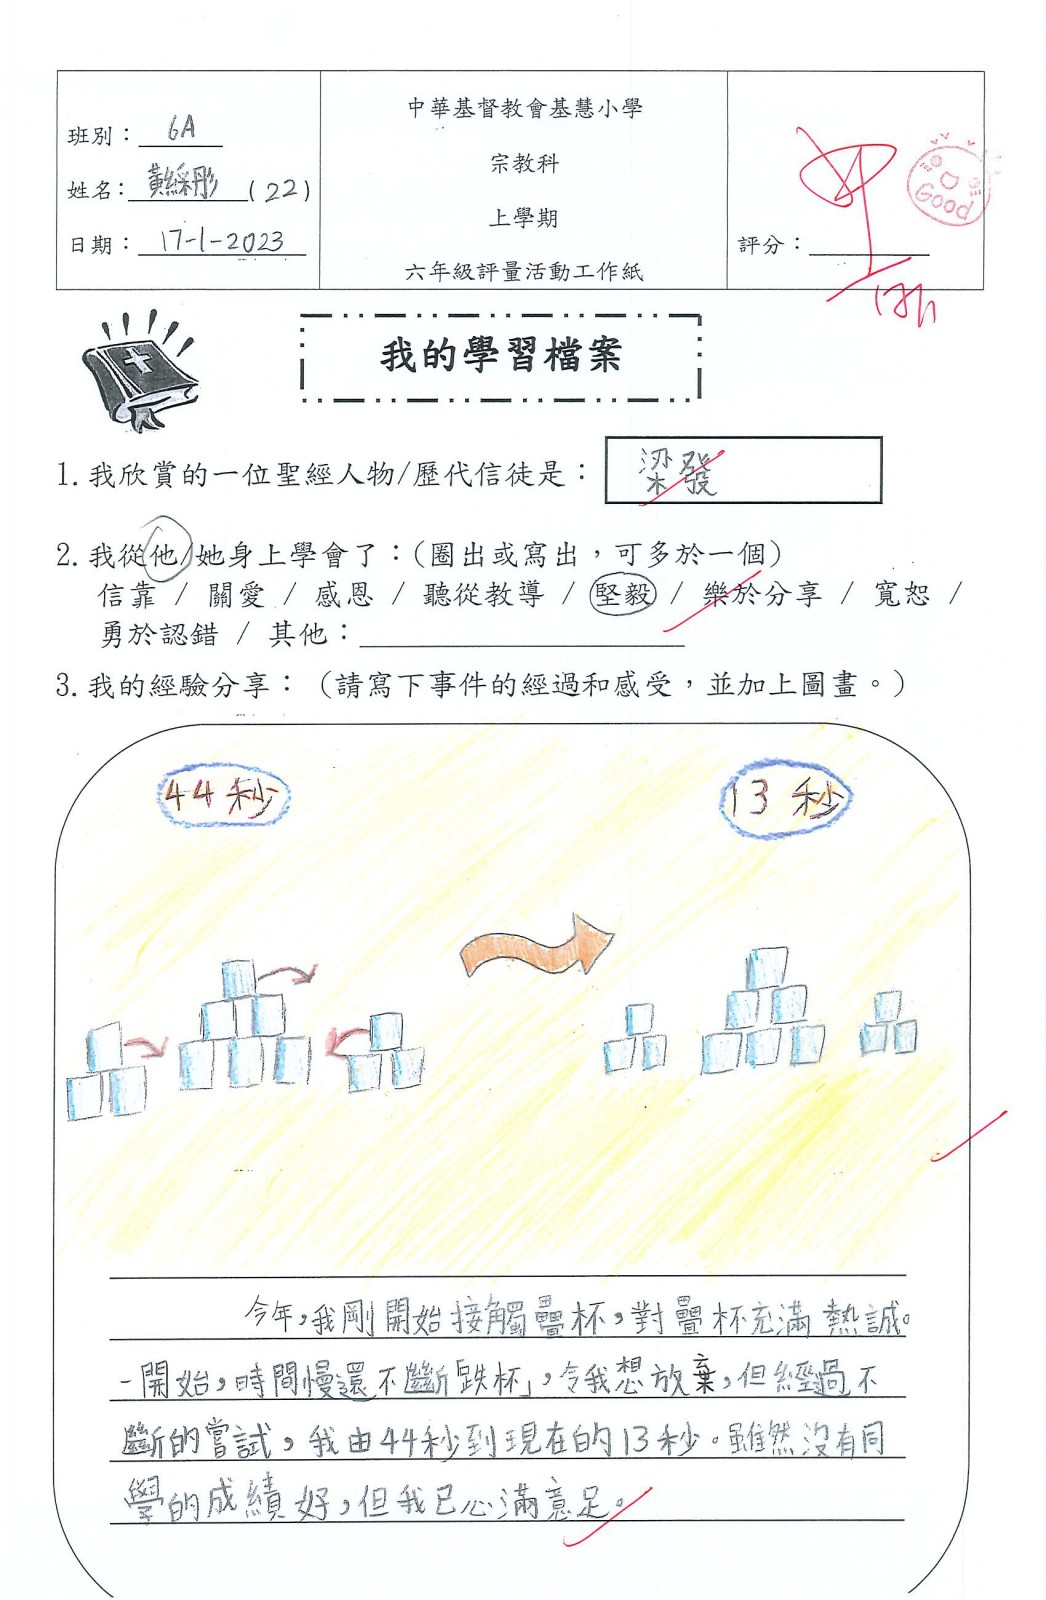 中華基督教會基慧小學
宗教科
上學期
六年級評量活動工作紙
班別：6A
姓名：黃綵彤(22)
日期：17-1-2023
評分：甲
Good
我的學習檔案
1.我欣賞的一位聖經人物/歷代信徒是：梁發
2.我從他/她身上學會了：(圈出或寫出，可多於一個)
信靠 / 關愛 / 感恩 / 聽從教導 / 堅毅 / 樂於分享 / 寬恕 /
勇於認錯 / 其他：
3.我的經驗分享：（請寫下事件的經過和感受，並加上圖畫。）
44秒
13秒
今年，我剛開始接觸疊杯，對疊杯充滿熱誠。
一開始，時間慢還不斷「跌杯」，令我想放棄，但經過不
斷的嘗試，我由44秒到現在的13秒。雖然沒有同
學的成績好，但我已心滿意足。